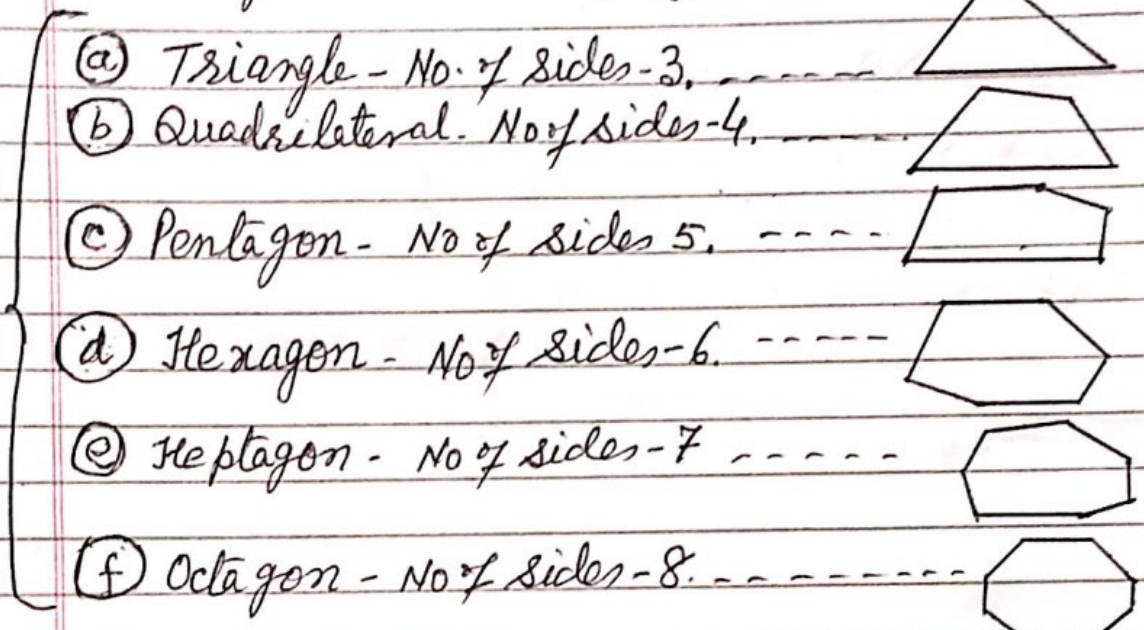 (a) Triangle - No. of sides - 3. ------
(b) Quadrilateral - No of sides - 4. ------
(c) Pentagon - No of sides 5. ----
(d) Hexagon - No of sides - 6. -----
(e) Heptagon - No of sides - 7 -----
(f) Octagon - No of sides - 8. ---------